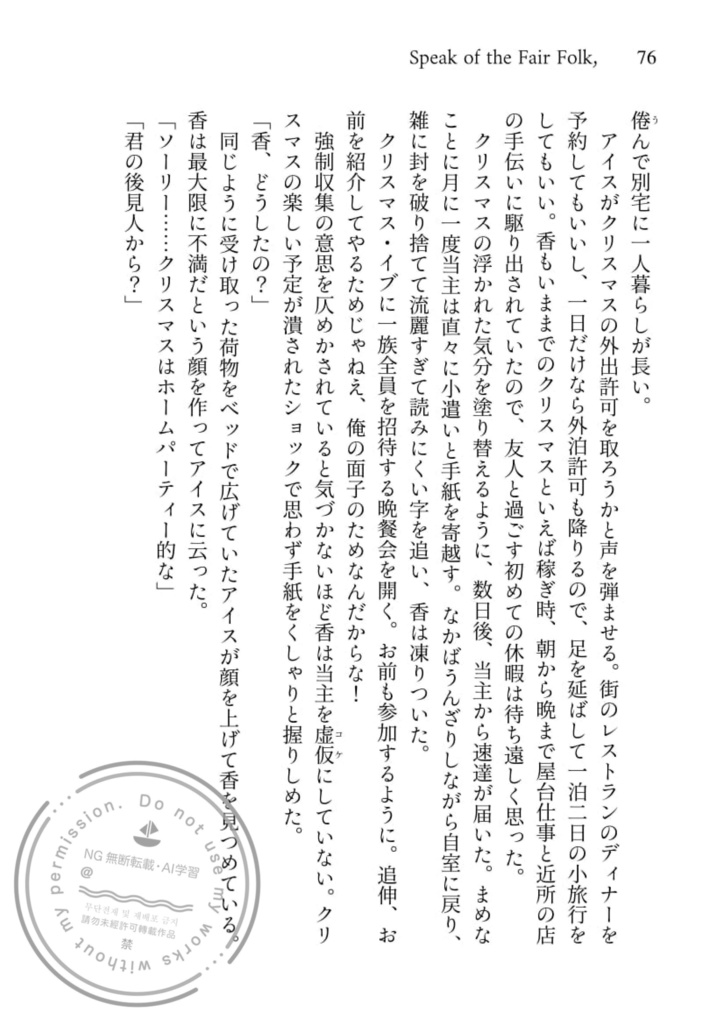 Speak of the Fair Folk, 76
倦んで別宅に一人暮らしが長い。
う
アイスがクリスマスの外出許可を取ろうかと声を弾ませる。街のレストランのディナーを
予約してもいいし、一日だけなら外泊許可も降りるので、足を延ばして一泊二日の小旅行を
してもいい。香もいままでのクリスマスといえば稼ぎ時、朝から晩まで屋台仕事と近所の店
の手伝いに駆り出されていたので、友人と過ごす初めての休暇は待ち遠しく思った。
クリスマスの浮かれた気分を塗り替えるように、数日後、当主から速達が届いた。まめな
ことに月に一度当主は直々に小遣いと手紙を寄越す。なかばうんざりしながら自室に戻り、
雑に封を破り捨てて流麗すぎて読みにくい字を追い、香は凍りついた。
クリスマス・イブに一族全員を招待する晩餐会を開く。お前も参加するように。追伸、お
前を紹介してやるためじゃねえ、俺の面子のためなんだからな!
強制収集の意思を仄めかされていると気づかないほど香は当主を虚仮にしていない。クリ
コケ
スマスの楽しい予定が潰されたショックで思わず手紙をくしゃりと握りしめた。
「香、どうしたの?」
同じように受け取った荷物をベッドで広げていたアイスが顔を上げて香を見つめている。
香は最大限に不満だという顔を作ってアイスに云った。
「ソーリー……クリスマスはホームパーティー的な」
「君の後見人から?」
Do not use my works without my permission.
NG 無断転載・AI学習
@
무단전재 및 재배포 금지
請勿未經許可轉載作品
禁